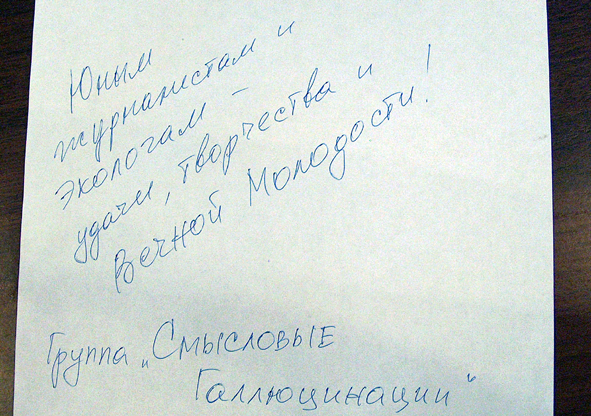 Юным
журналистам и
экологам –
удачи, творчества и
Вечной Молодости!
Группа „Смысловые
Галлюцинации“